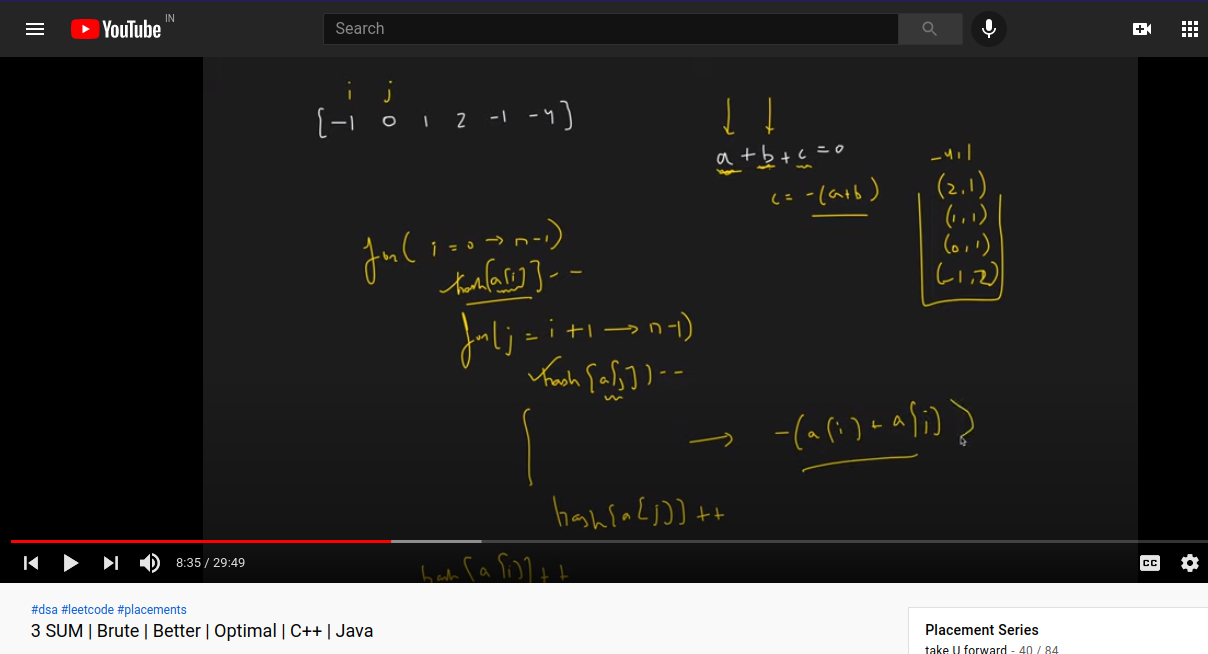 YouTube IN
Search
i j
[-1 0 1 2 -1 -4]
a + b + c = 0
c = -(a+b)
-4,1
(2,1)
(1,1)
(0,1)
(-1,2)
for( i = 0 → n-1)
hash[a[i]]--
for(j = i+1 → n-1)
hash[a[j]]--
→ -(a[i] + a[j])
hash[a[j]]++
hash[a[i]]++
8:35 / 29:49
CC
#dsa #leetcode #placements
3 SUM | Brute | Better | Optimal | C++ | Java
Placement Series
take U forward - 40 / 84